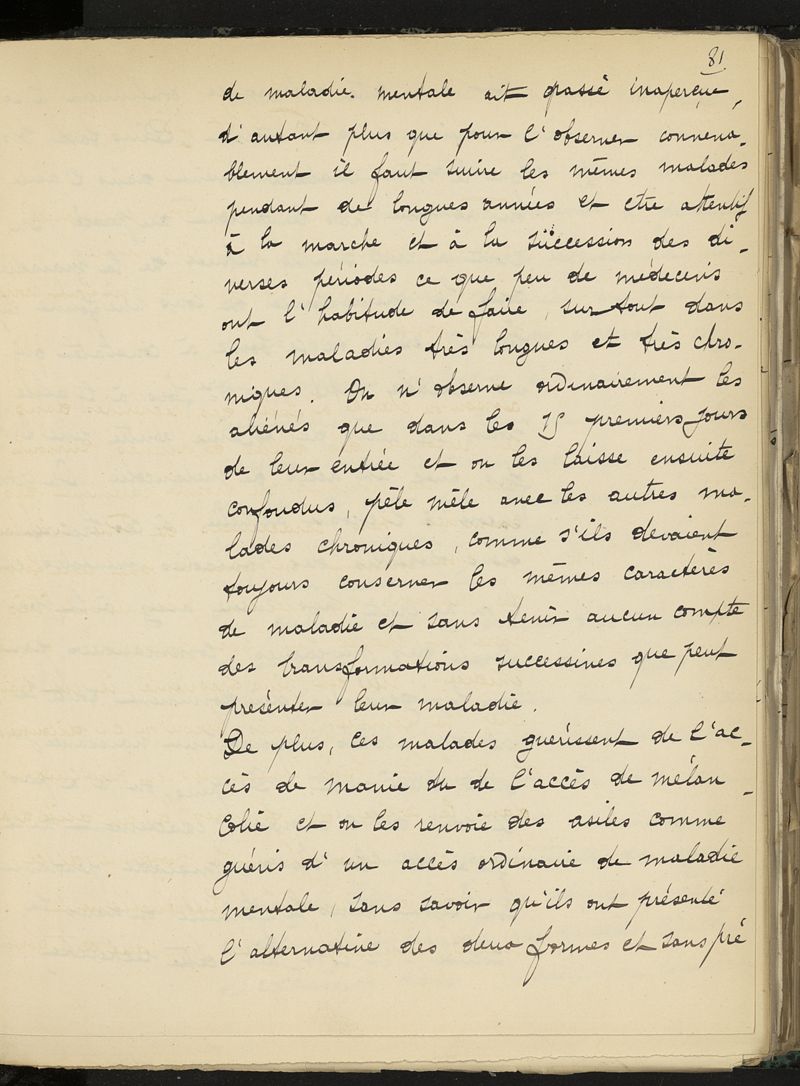 81
de maladie. mentale ait passé inaperçue,
d'autant plus que pour l'observer convena-
blement il faut suivre les mêmes malades
pendant de longues années et être attentif
à la marche et à la succession des di-
verses périodes ce que peu de médecins
ont l'habitude de faire, surtout dans
les maladies très longues et très chro-
niques. On n'observe ordinairement les
aliénés que dans les 15 premiers jours
de leur entrée et on les laisse ensuite
confondus, pêle mêle avec les autres ma-
lades chroniques, comme s'ils devaient
toujours conserver les mêmes caractères
de maladie et sans tenir aucun compte
des transformations successives que peut
présenter leur maladie.
De plus, ces malades guérissent de l'ac-
cès de manie ou de l'accès de mélan-
colie et on les renvoie des asiles comme
guéris d'un accès ordinaire de maladie
mentale, sans savoir qu'ils ont présenté
l'alternative des deux formes et sans pré